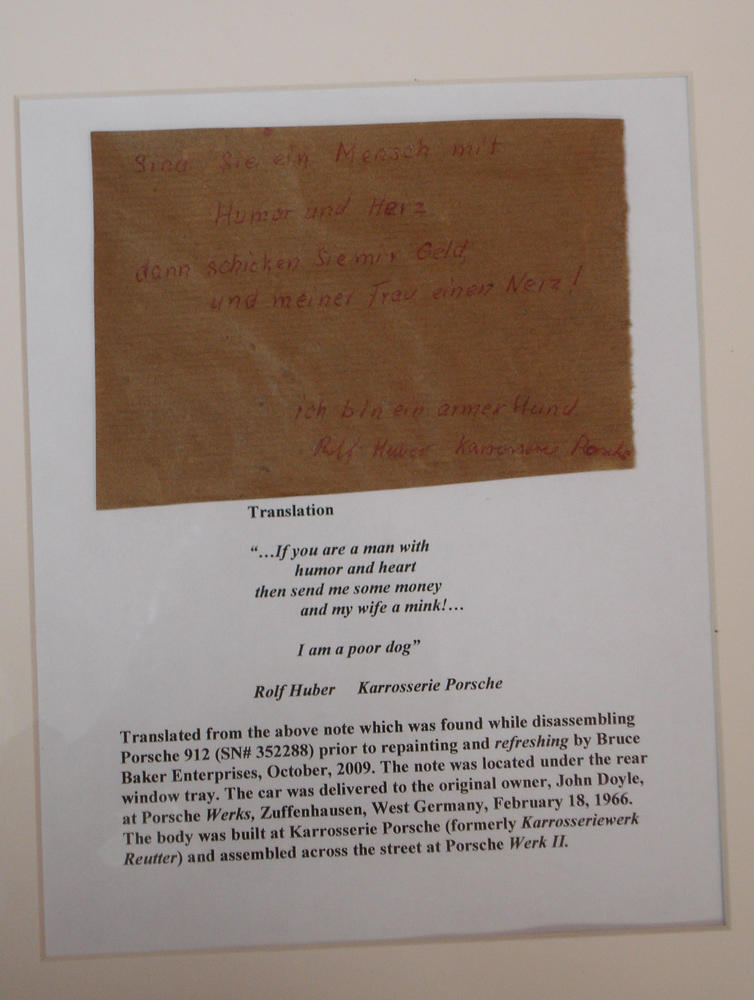 Sind Sie ein Mensch mit
Humor und Herz
dann schicken Sie mir Geld,
und meiner Frau einen Nerz!
ich bin ein armer Hund
Rolf Huber Karrosserie Porsche
Translation
“…If you are a man with
humor and heart
then send me some money
and my wife a mink!…
I am a poor dog”
Rolf Huber Karrosserie Porsche
Translated from the above note which was found while disassembling
Porsche 912 (SN# 352288) prior to repainting and refreshing by Bruce
Baker Enterprises, October, 2009. The note was located under the rear
window tray. The car was delivered to the original owner, John Doyle,
at Porsche Werks, Zuffenhausen, West Germany, February 18, 1966.
The body was built at Karrosserie Porsche (formerly Karrosseriewerk
Reutter) and assembled across the street at Porsche Werk II.